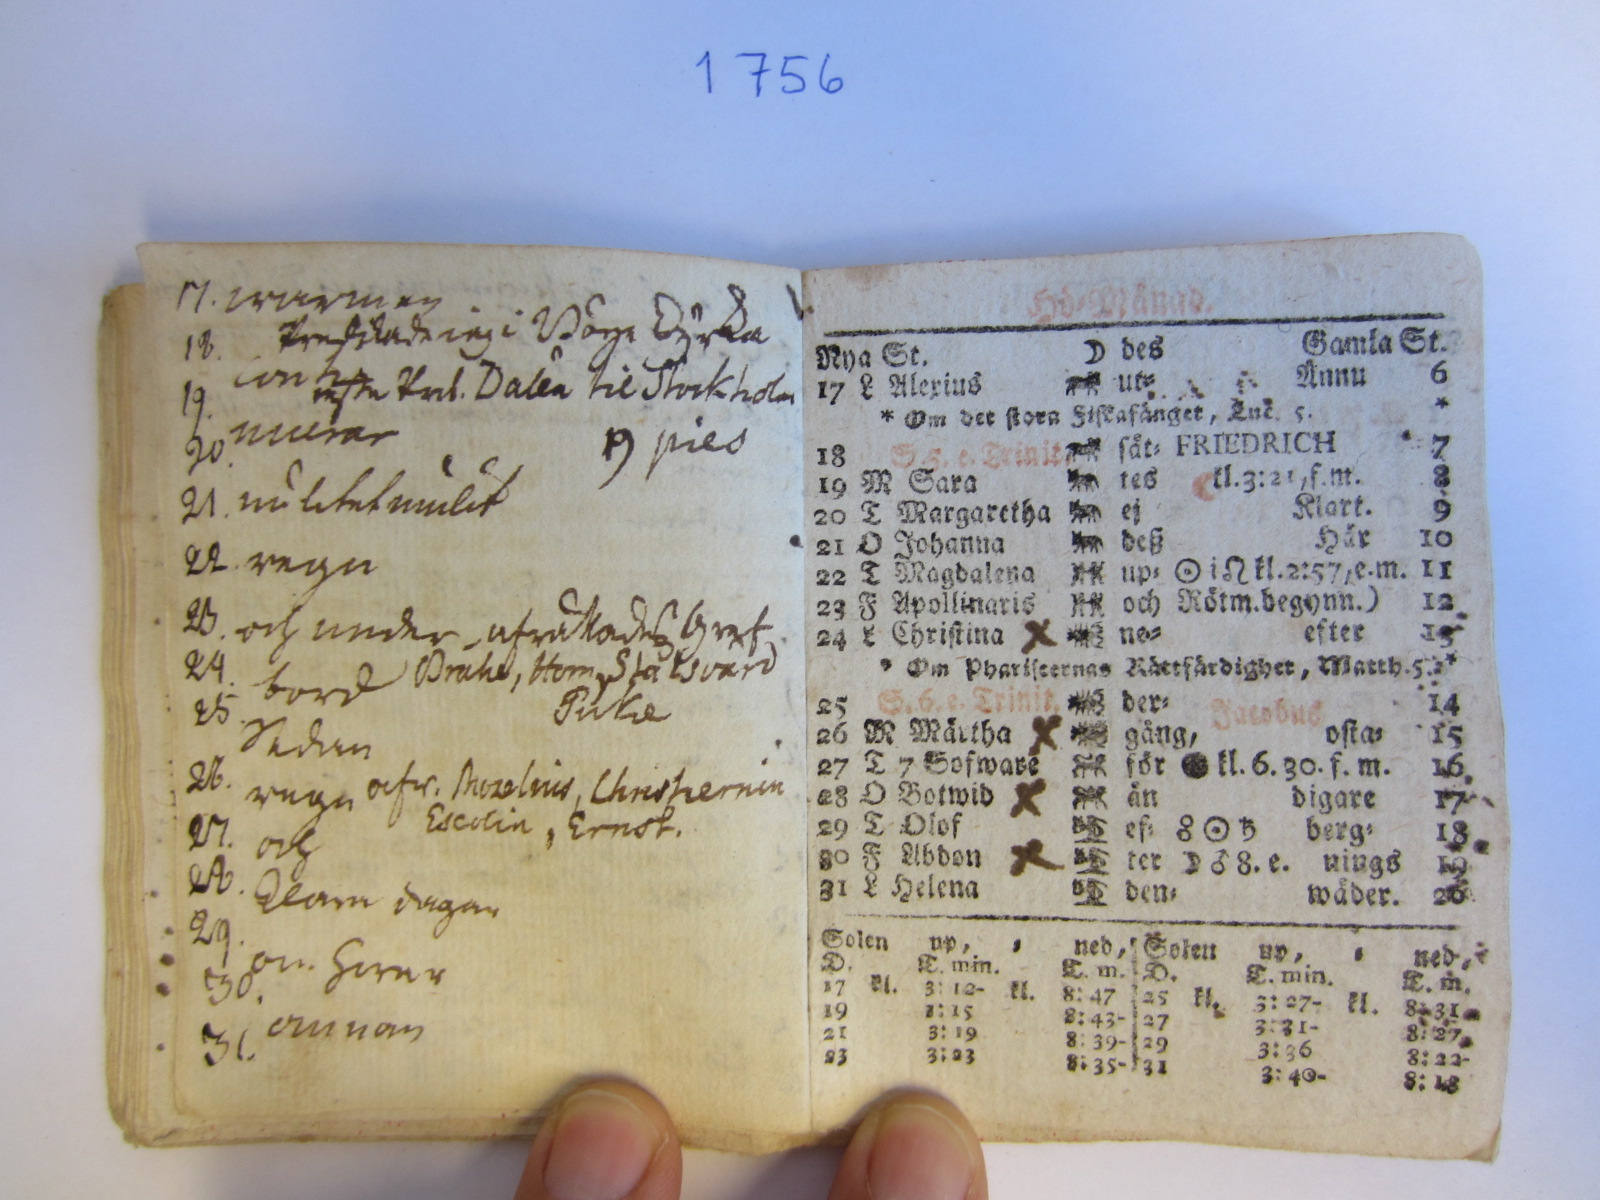 1756
17. warmen
18. i Wånge Cyrka
19. Prof. Dalén til Stockholm
20. murar 19 pies
21. mulit
22. regn
23. och under afrättades Gref.
24. bord Brahe, Horn, Stålsvärd
25. Puke
Sedan
26. regn Christiernin
27. och Escolin, Ernst.
28. klara dagar
29.
30. om
31. annan
Hö-Månad.
Nya St. ☽ des Gamla St.
17 L Alexius ut- Annu 6
* Om det stora Fiskafänget, Luc. 5. *
18 S. 5. e. Trinit. sät- FRIEDRICH 7
19 M Sara tes kl. 3:21, f. m. 8
20 T Margaretha ej Klart. 9
21 O Johanna deß Här 10
22 T Magdalena up- ☉ i ♌ kl. 2:57, e. m. 11
23 F Apollinaris och Rötm. begynn.) 12
24 L Christina ne- efter 13
* Om Phariseernas Rättfärdighet, Matth. 5. *
25 S. 6. e. Trinit. der- Jacobus 14
26 M Märtha gång, osta- 15
27 T 7 Sofware för ● kl. 6. 30. f. m. 16
28 O Botwid än digare 17
29 T Olof ef- ☍ ☉ ♄ berg- 18
30 F Abdon ter ☽ ♂ 8. e. nings 19
31 L Helena den- wäder. 20
Solen up, ned, Solen up, ned,
D. T. min. T. m. D. T. min. T. m.
17 kl. 3:12- kl. 8:47 25 kl. 3:27- kl. 8:31
19 3:15 8:43- 27 3:31- 8:27
21 3:19 8:39- 29 3:36 8:22-
23 3:23 8:35- 31 3:40- 8:18